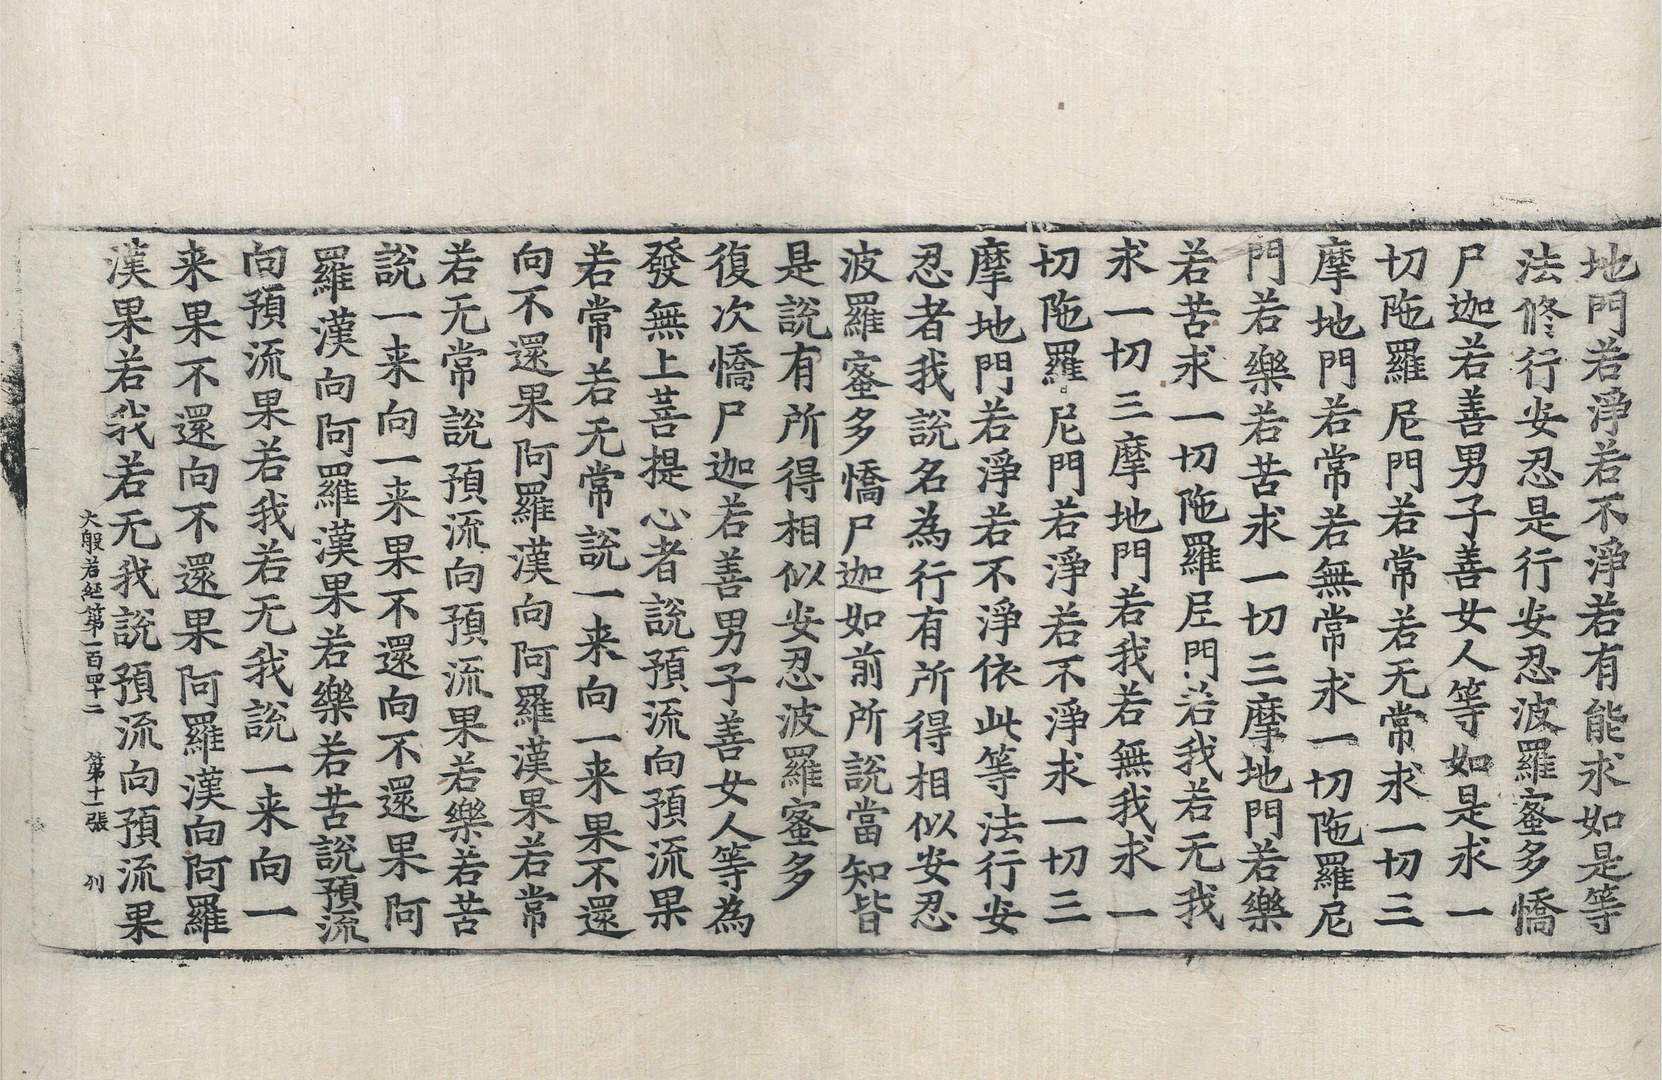 地門若淨若不淨若有能求如是等
法修行安忍是行安忍波羅蜜多憍
尸迦若善男子善女人等如是求一
切陁羅尼門若常若无常求一切三
摩地門若常若無常求一切陁羅尼
門若樂若苦求一切三摩地門若樂
若苦求一切陁羅尼門若我若无我
求一切三摩地門若我若無我求一
切陁羅尼門若淨若不淨求一切三
摩地門若淨若不淨依此等法行安
忍者我說名為行有所得相似安忍
波羅蜜多憍尸迦如前所說當知皆
是說有所得相似安忍波羅蜜多
復次憍尸迦若善男子善女人等為
發無上菩提心者說預流向預流果
若常若无常說一来向一来果不還
向不還果阿羅漢向阿羅漢果若常
若无常說預流向預流果若樂若苦
說一来向一来果不還向不還果阿
羅漢向阿羅漢果若樂若苦說預流
向預流果若我若无我說一来向一
来果不還向不還果阿羅漢向阿羅
漢果若我若无我說預流向預流果
大般若經第一百四十二 第十一張 列